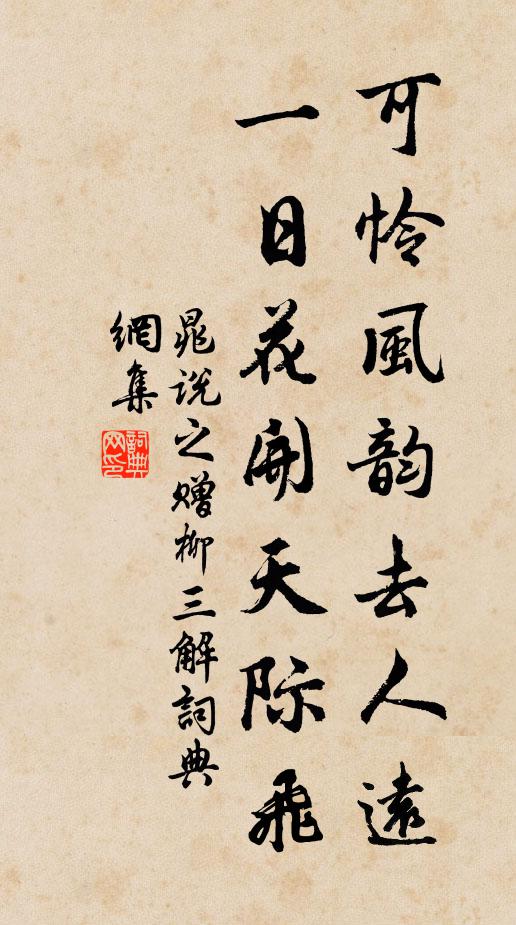 可怜風韵去人遠
一日花開天际飛
晁说之赠柳三解詞典
網集
詞典网印